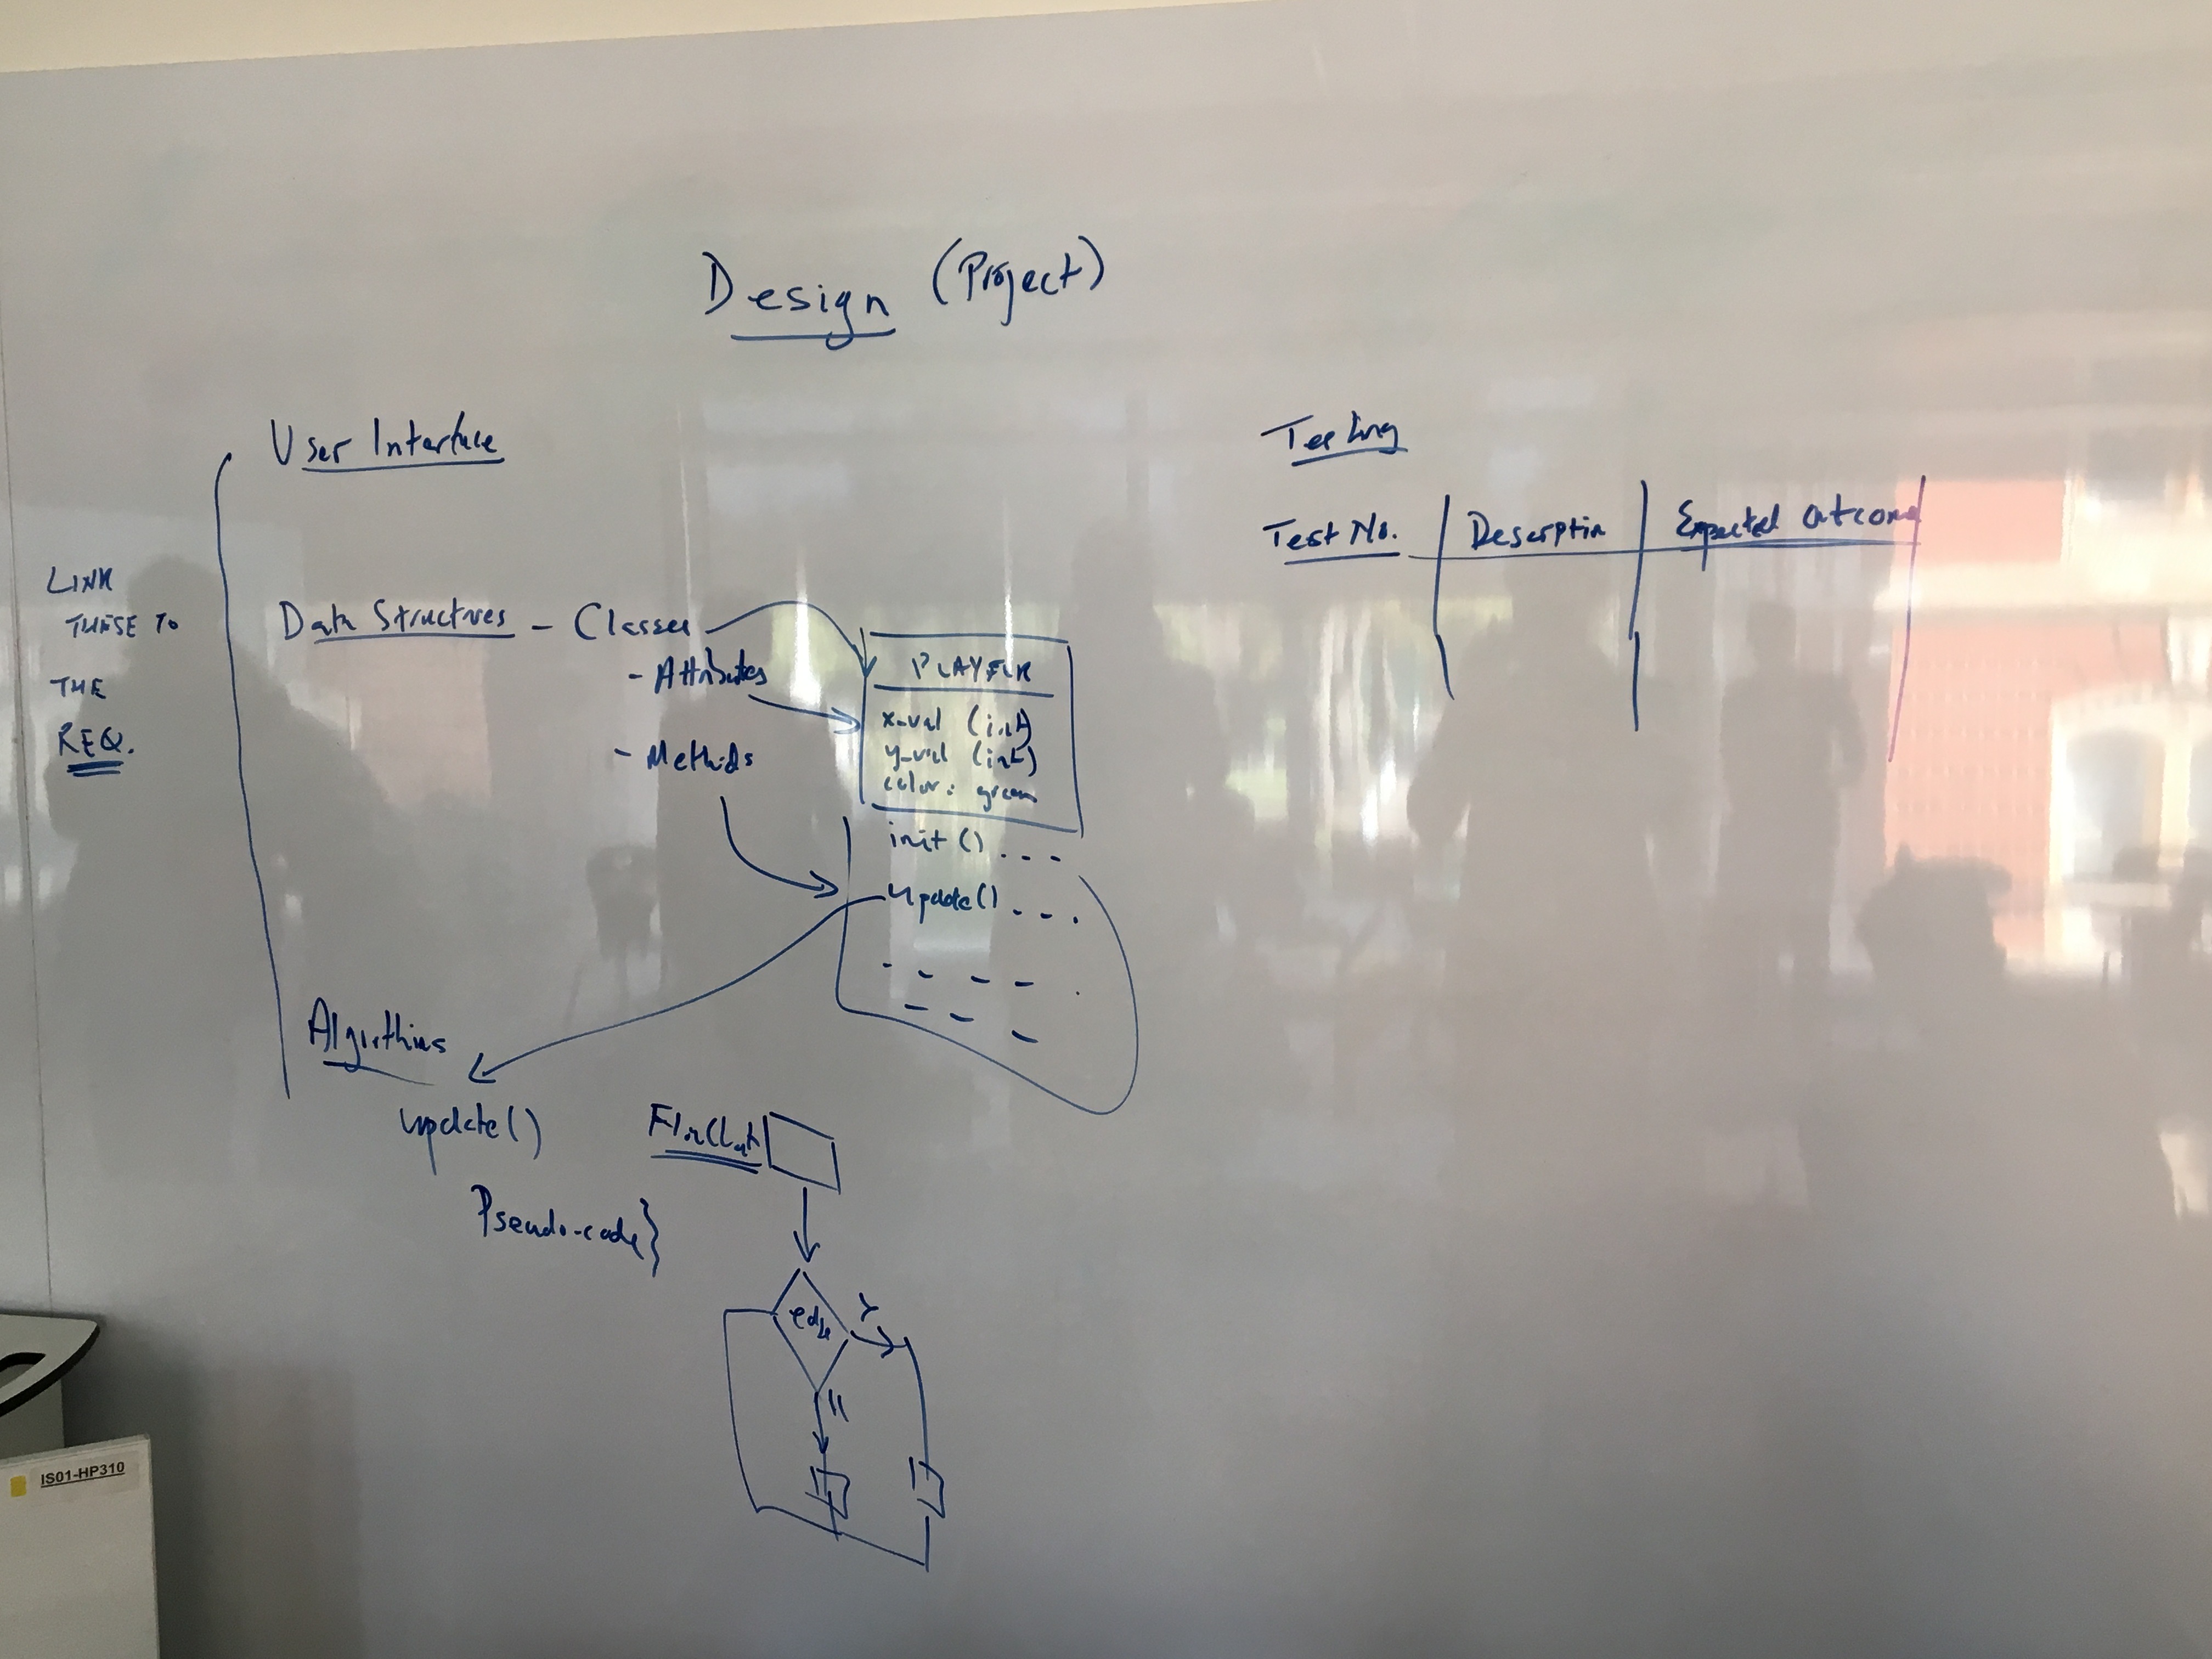 Design (Project)
User Interface
LINK
THESE TO
THE
REQ.
Data Structures - Classes
- Attributes
- Methods
PLAYER
x-val (int)
y-val (int)
color: green
init() ...
update() ...
Algorithms
update()
Pseudo-code}
FlowChart
edge
Y
N
Testing
Test No. | Description | Expected Outcome
IS01-HP310